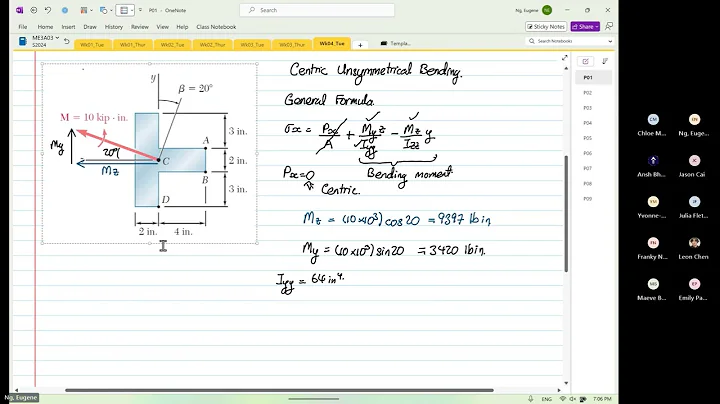 P01 - OneNote
Search
Ng, Eugene
NE
File
Home
Insert
Draw
View
Help
Class Notebook
Sticky Notes
Share
ME3A03
S2024
Wk01_Tue
Wk01_Thur
Wk02_Tue
Wk02_Thur
Wk03_Tue
Wk03_Thur
Wk04_Tue
+
Templa...
Search Notebooks
P01
P02
P03
P04
P05
P06
P07
P08
P09
y
β = 20°
M = 10 kip · in.
My
20°
Mz
C
A
B
D
3 in.
2 in.
3 in.
2 in.
4 in.
Centric Unsymmetrical Bending.
General Formula.
σx = Px/A + My z/Iyy − Mz y/Izz
Px=0
Centric.
Bending moment
Mz = (10×10³) cos20 = 9397 lb in
My = (10×10³) sin20 = 3420 lb in.
Iyy = 64 in⁴.
CM
Chloe M...
NE
Ng, Eu...
Ansh Bh...
JC
Jason Cai
YM
Yvonne-...
JF
Julia Flet...
FN
Franky N...
LC
Leon Chen
MS
Maeve B...
EP
Emily Pa...
Ng, Eugene
ENG
7:06 PM